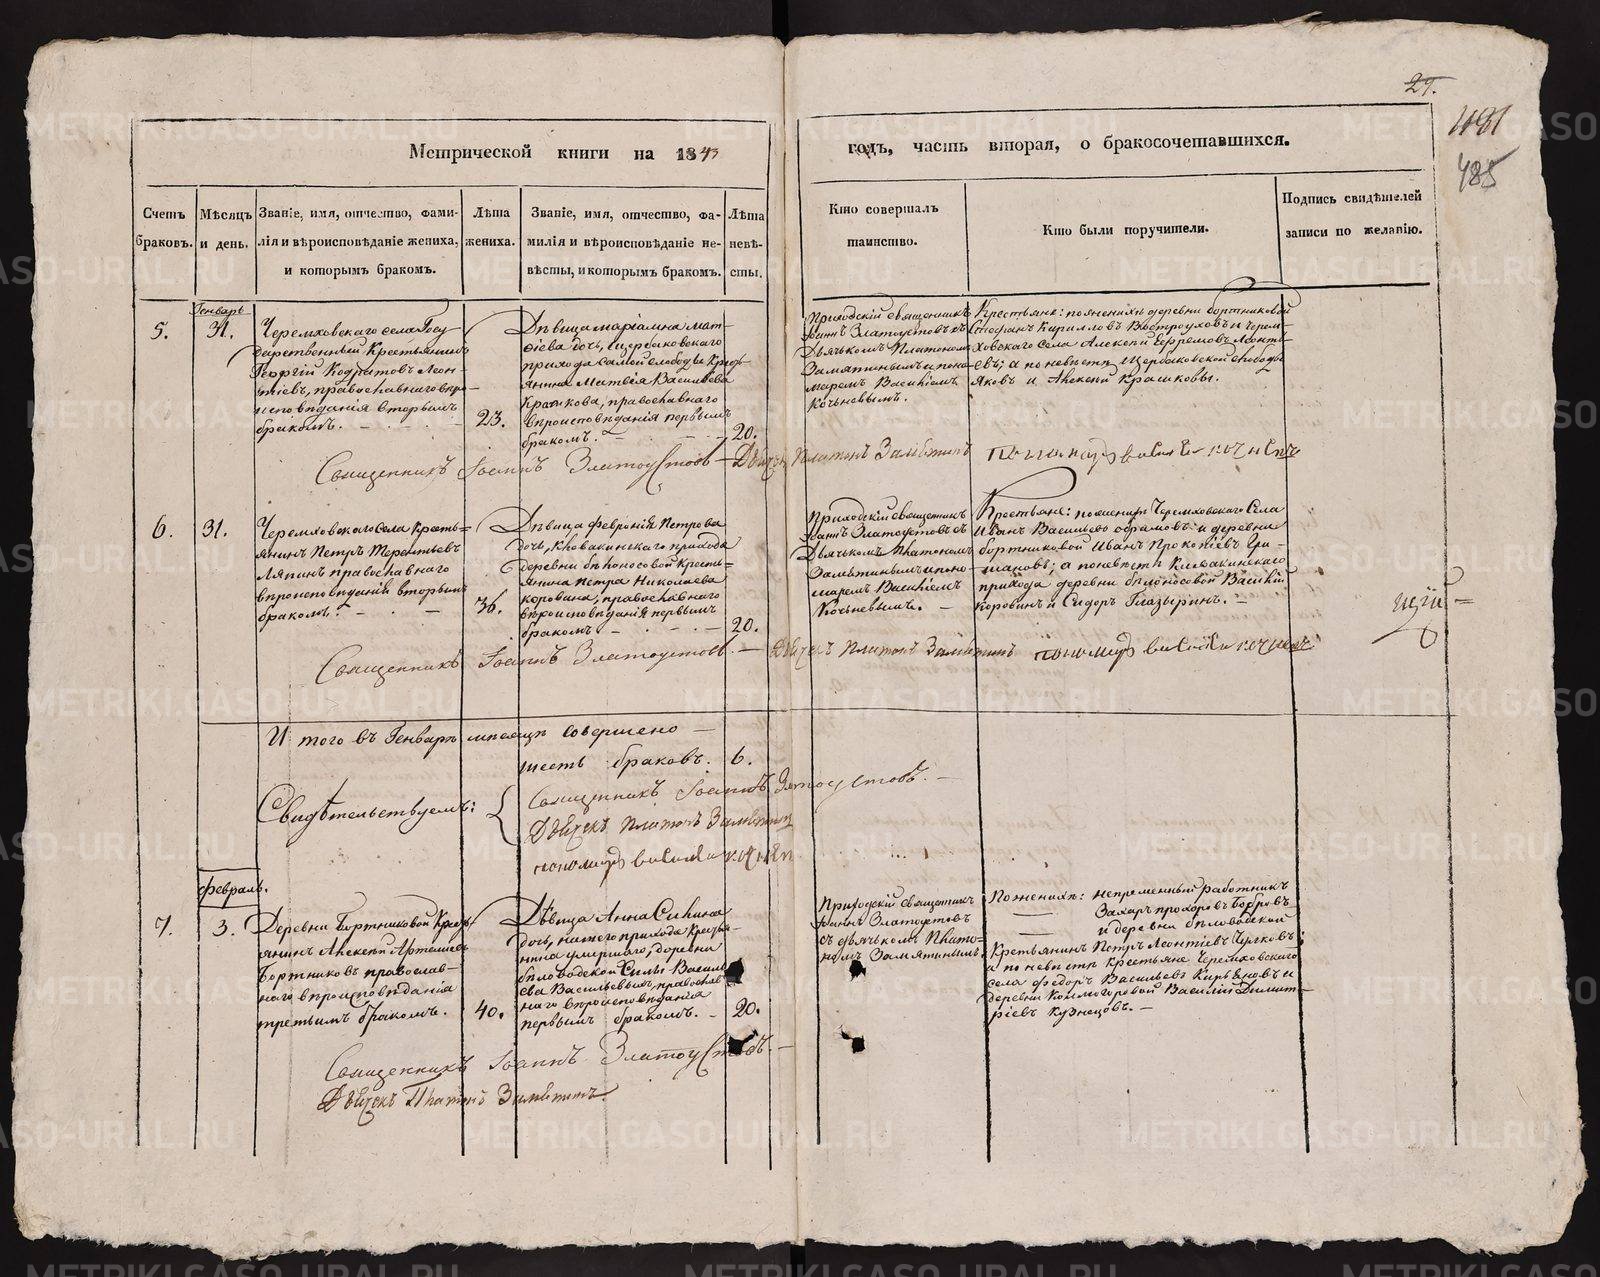 29.
481
485
Метрической книги на 1843
годъ, часть вторая, о бракосочетавшихся.
Счетъ браковъ.
Мѣсяцъ и день.
Званіе, имя, отчество, фами-
лія и вѣроисповѣданіе жениха,
и которымъ бракомъ.
Лѣта жениха.
Званіе, имя, отчество, фа-
милія и вѣроисповѣданіе не-
вѣсты, и которымъ бракомъ.
Лѣта невѣ-
сты.
Кто совершалъ
таинство.
Кто были поручители.
Подпись свидѣтелей
записи по желанію.
Генварь
5.
31.
Черемховскаго села Госу-
дарственный Крестьянинъ
Георгій Кодратовъ Леон-
тіевъ, православнаго вѣро-
исповѣданія вторымъ
бракомъ.
23.
Дѣвица Маріамна Мат-
ѳіева дочь, Щербаковскаго
прихода самой слободы Кресть-
янина Матвія Васильева
Крашкова, православнаго
вѣроисповѣданія первымъ
бракомъ.
20.
Приходскій священникъ
Іоаннъ Златоустовъ съ
Дьячкомъ Платономъ
Замятинымъ и поно-
маремъ Василіемъ
Кочневымъ.
Крестьяне: по женихѣ деревни Бортниковой
Стефанъ Кирилловъ Вострухов и Черем-
ховскаго села Алексій Ефремовъ Леонть-
евъ; а по невѣстѣ Щербаковской слободы
Яковъ и Алексій Крашковы.
Священникъ Іоаннъ Златоустовъ — Дьячекъ Платонъ Замятинъ пономарь василей кочневъ
6.
31.
Черемховскаго села Кресть=
янинъ Петръ Терентьевъ
Ляпинъ православнаго
вѣроисповѣданія вторымъ
бракомъ.
36.
Дѣвица Февронія Петрова
дочь, Клевакинскаго прихода
деревни Бѣлоносовой Кресть=
янина Петра Николаева
Коровина, православнаго
вѣроисповѣданія первымъ
бракомъ
20.
Приходскій священникъ
Іоаннъ Златоустовъ съ
Дьячкомъ Платономъ
Замятинымъ и поно-
маремъ Василіемъ
Кочневымъ.
Крестьяне: по женихѣ Черемховскаго села
Иванъ Васильевъ Абрамовъ и деревни
Бортниковой Иванъ Прокопіевъ Гри-
шановъ; а по невѣстѣ Клевакинскаго
прихода деревни Бѣлоносовой Василій
Коровинъ и Сидоръ Глазыринъ.
Священникъ Іоаннъ Златоустовъ. — Дьячекъ Платонъ Замятинъ пономарь василей кочневъ
И того въ Генварѣ мѣсяцѣ совершено
шесть браковъ. 6.
Свидѣтельствуемъ:
Священникъ Іоаннъ Златоустовъ.
Дьячекъ Платонъ Замятинъ
пономарь василей кочневъ
Февраль.
7.
3.
Деревни Бортниковой Кресть-
янинъ Алексій Артемьевъ
Бортниковъ православ-
наго вѣроисповѣданія
третьимъ бракомъ.
40.
Дѣвица Анна Силина
дочь, нашего прихода Кресть-
янина умершаго, деревни
Бѣловодской Силы Василь-
ева Васильевыхъ, православ-
наго вѣроисповѣданія
первымъ бракомъ.
20.
Приходскій священникъ
Іоаннъ Златоустовъ
съ дьячкомъ Плато-
номъ Замятинымъ.
По женихѣ: непременный работникъ
Захаръ Прохоровъ Бобровъ
и деревни Бѣловодской
Крестьянинъ Петръ Леонтіевъ Чулковъ;
а по невѣстѣ Крестьяне Черемховскаго
села Федоръ Васильевъ Кирьяновъ и
деревни Колмогоровой Василій Димит-
ріевъ Кузнецовъ.
Священникъ Іоаннъ Златоустовъ.
Дьячекъ Платонъ Замятинъ